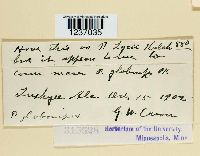 1237035
Have this as P. Lycii Hulch 880
but it appears to me to
come nearer P. globosus Pk
Tuskegee, Ala. Dec 15 1902
P. globosus G. W. Carver
Herbarium of the University
Minneapolis, Minn